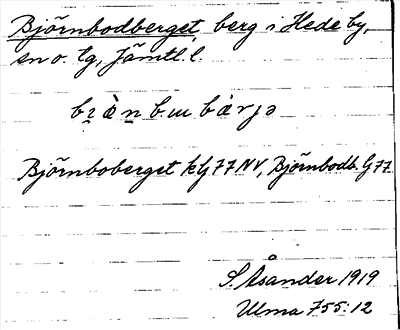 Björnbodberget, berg i Hede by,
sn o. tg, Jämtl. l.
Björnboberget kG77NV, Björnbodb. G77
S. Åsander 1919
Ulma 755:12